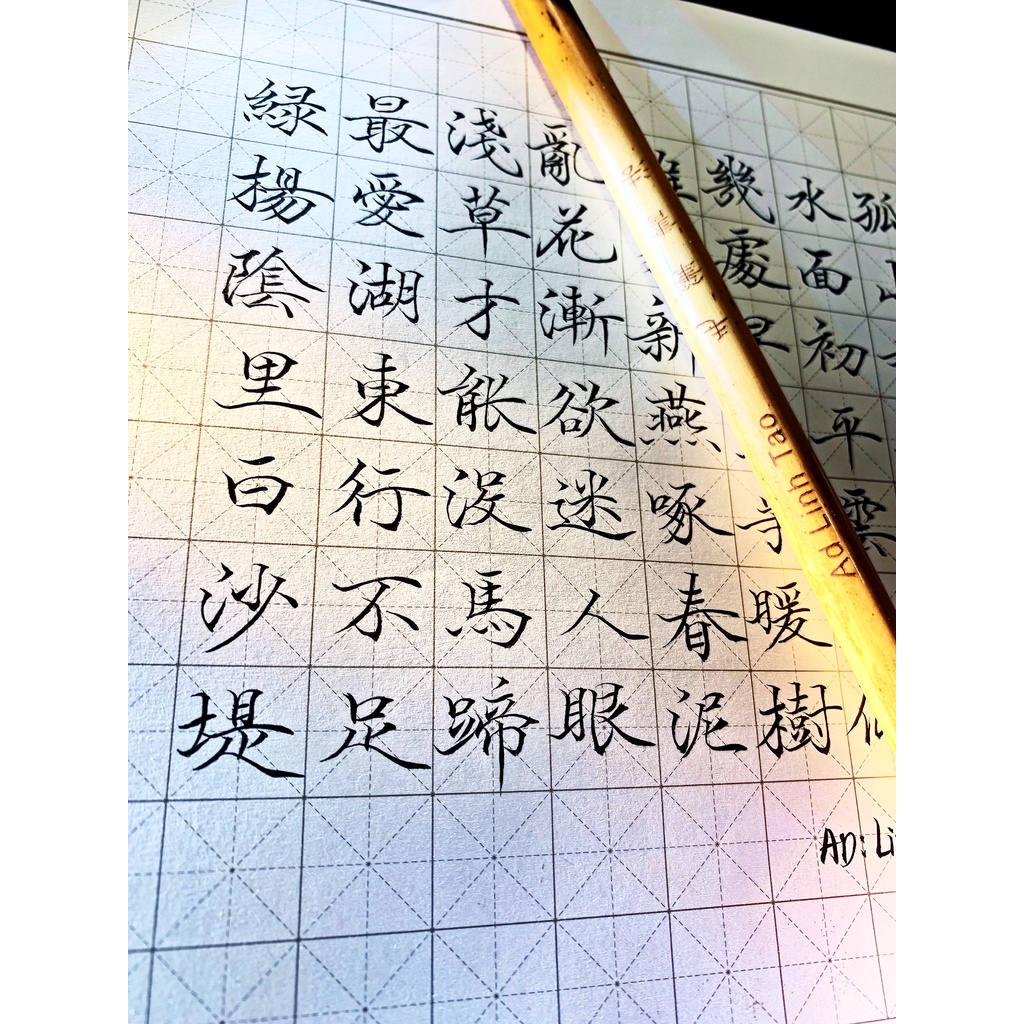 孤
水面初平雲
幾處早暖樹
新燕啄春泥
亂花漸欲迷人眼
淺草才能没馬蹄
最愛湖東行不足
緑楊陰里白沙堤
AD: Li
Ad Linh Tao